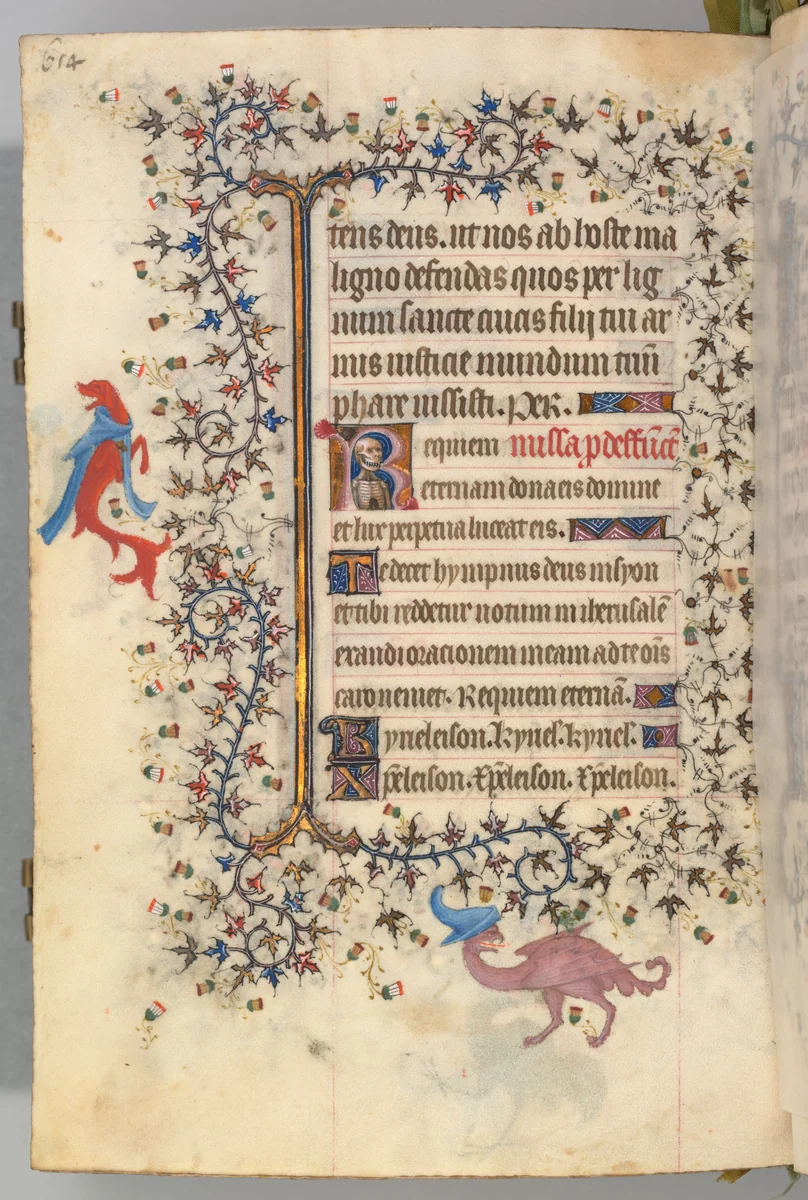 614
tens deus. ut nos ab hoste ma
ligno defendas quos per lig
num sancte crucis filij tui ar
mis iusticie mundum triū
phare iussisti. Per.
Requiem missa p deffūct
eternam dona eis domine
et lux perpetua luceat eis.
Te decet hympnus deus in syon
et tibi reddetur uotum in iherusalē
exaudi orationem meam ad te oīs
caro ueniet. Requiem eternā.
Kyrieleison. kyriel. kyriel.
Xp̄eleison. Xp̄eleison. Xp̄eleison.